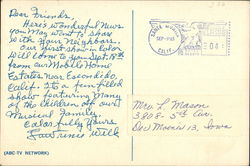 Dear Friends,
Here's wonderful news
you may want to share
with your neighbors.
Our first show in color
will come to you Sept. 18th
from our Mobile Home
Estates near Escondido,
Calif. It's a fun filled
show featuring many
of the children of our
Musical Family.
Colorfully Yours
Lawrence Welk
(ABC-TV NETWORK)
SANTA MONICA
CALIF.
Mrs L Mason
3808-5th Ave.
Des Moines 13, Iowa